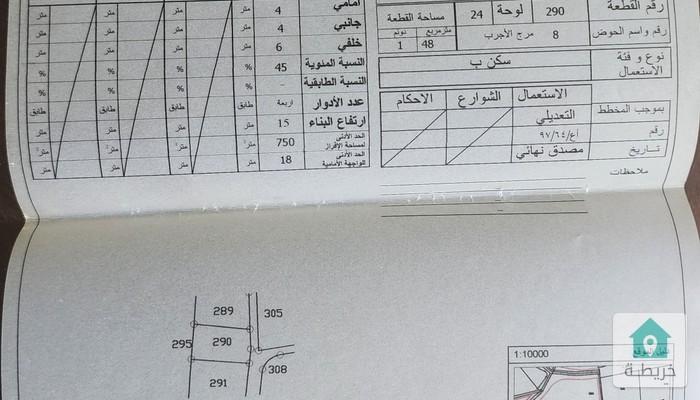 رقم القطعة 290 لوحة 24 مساحة القطعة
متر مربع دونم
رقم واسم الحوض 8 مرج الأجرب 48 1
نوع وفئة الاستعمال سكن ب
الاستعمال الشوارع الاحكام
بموجب المخطط التعديلي
رقم أع/٩٧/٦٤
تاريخ مصدق نهائي
ملاحظات
أمامي 4 متر متر متر متر
جانبي 4 متر متر متر متر
خلفي 6 متر متر متر متر
النسبة المئوية 45 % % % %
النسبة الطابقية - % % % %
عدد الأدوار اربعة طابق طابق طابق طابق
ارتفاع البناء 15 متر متر متر متر
الحد الأدنى لمساحة الإفراز 750 متر٢ متر٢ متر٢ متر٢
الحد الأدنى للواجهة الأمامية 18 متر متر متر متر
289
305
295
290
308
291
1:10000
دليل الموقع
خريطة